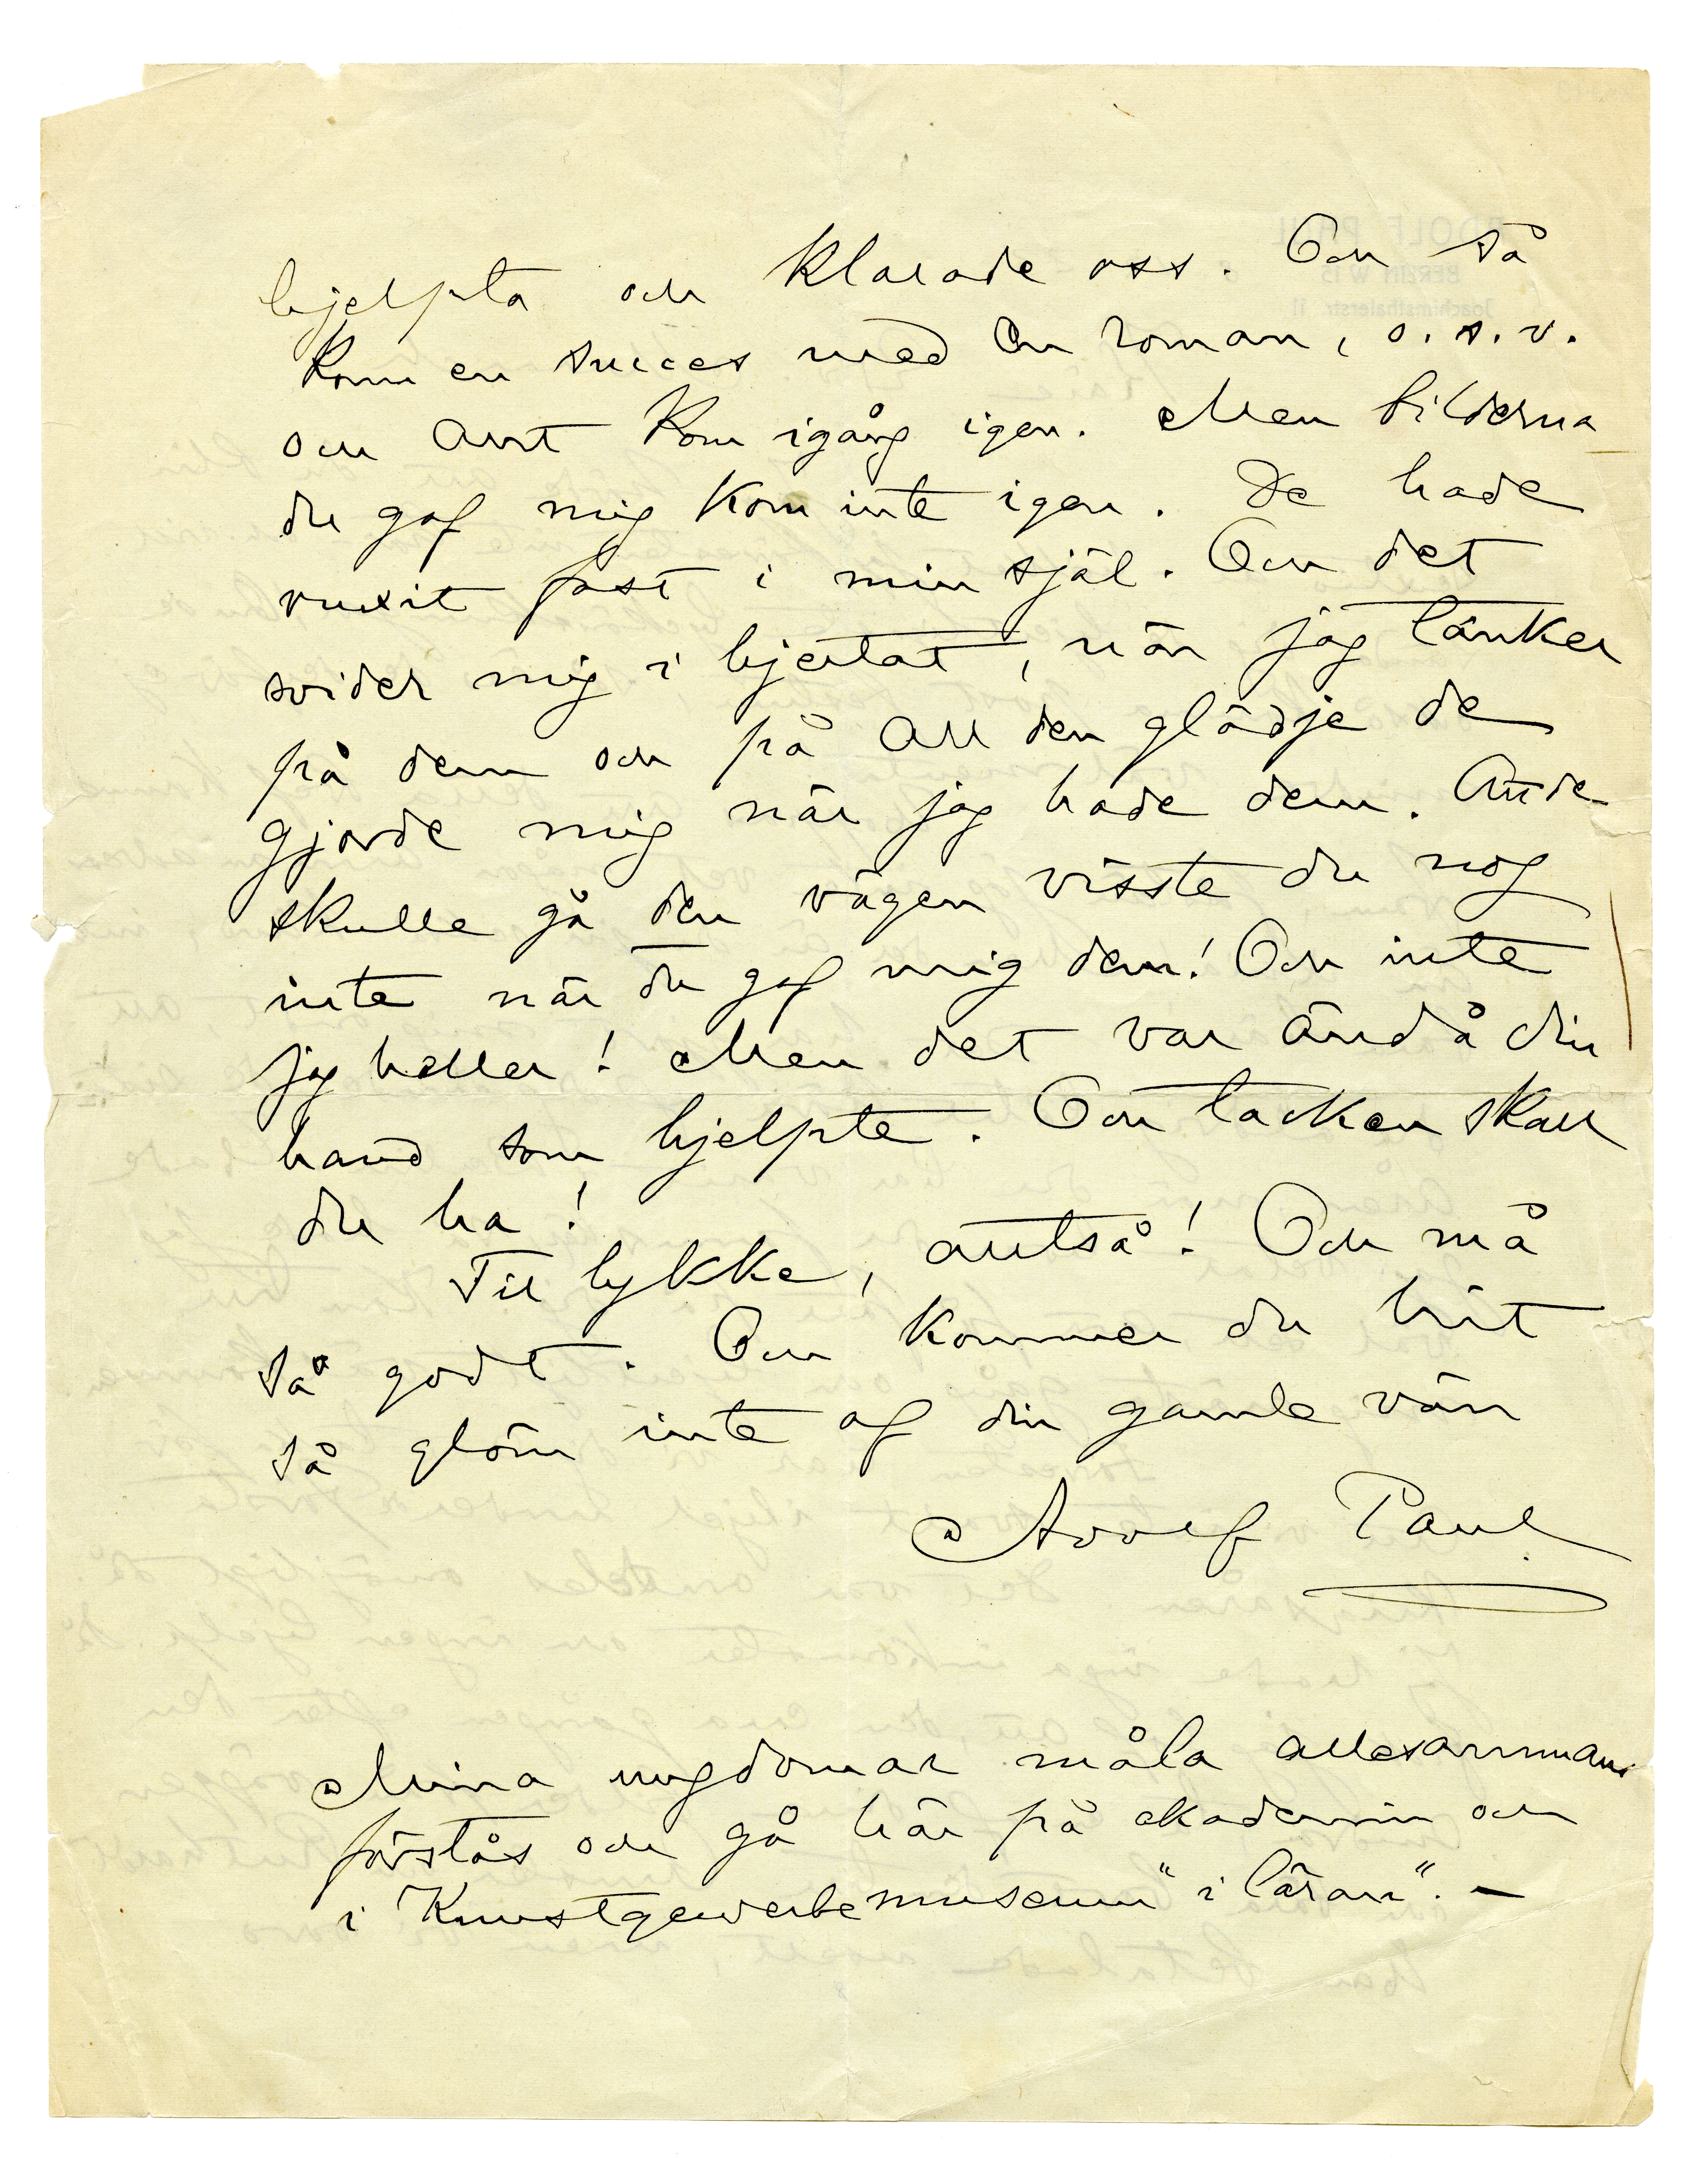 hjelpta och klarade oss. Och så
kom en succes med en roman, o. s. v.
och allt kom igång igen. Men bilderna
du gaf mig kom inte igen. De hade
vuxit fast i min själ. Och det
svider mig i hjertat, när jag tänker
på dem och på all den glädje de
gjorde mig när jag hade dem. Att de
skulle gå den vägen visste du nog
inte när du gaf mig dem! Och inte
jag heller! Men det var ändå din
hand som hjelpte. Och tacken skall
du ha!
Til lykke, alltså! Och må
så godt. Och kommer du hit
så glöm inte af din gamle vän
Adolf Paul
Mina ungdomar måla allesammans
förstås och gå här på akademin och
i Kunstgewerbemuseum "i läran". —